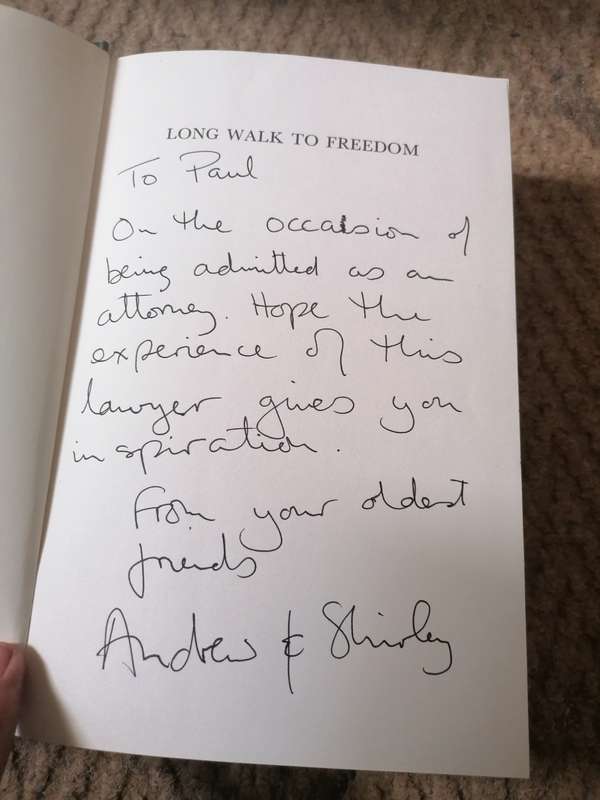 LONG WALK TO FREEDOM
To Paul
On the occasion of
being admitted as an
attorney. Hope the
experience of this
lawyer gives you
inspiration.
From your oldest
friends
Andrew & Shirley